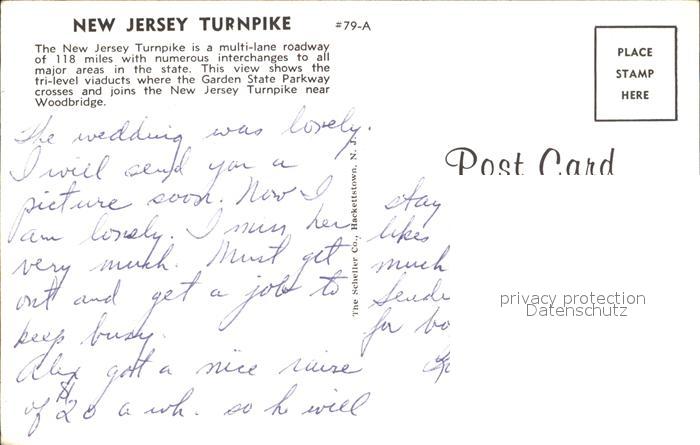 NEW JERSEY TURNPIKE #79-A
The New Jersey Turnpike is a multi-lane roadway
of 118 miles with numerous interchanges to all
major areas in the state. This view shows the
tri-level viaducts where the Garden State Parkway
crosses and joins the New Jersey Turnpike near
Woodbridge.
The wedding was lovely.
I will send you a
picture soon. Now I
am lonely. I miss her
very much. Must get
out and get a job to
keep busy.
Alex got a nice raise
of $20 a wk. so he will
The Scheller Co., Hackettstown, N. J.
PLACE
STAMP
HERE
Post Card
stay
likes
much
Sende
for bo
privacy protection
Datenschutz